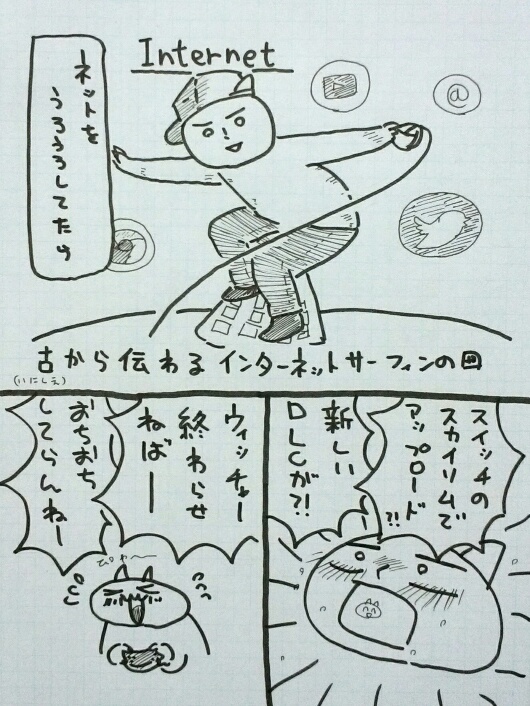 Internet
ーネットを
うろうろしてたら
@
古から伝わるインターネットサーフィンの図
(いにしえ)
スイッチの
スカイリムで
アップロード?!
新しい
DLCが?!
ウィッチャー
終わらせ
ねばー
おちおち
してらんねー